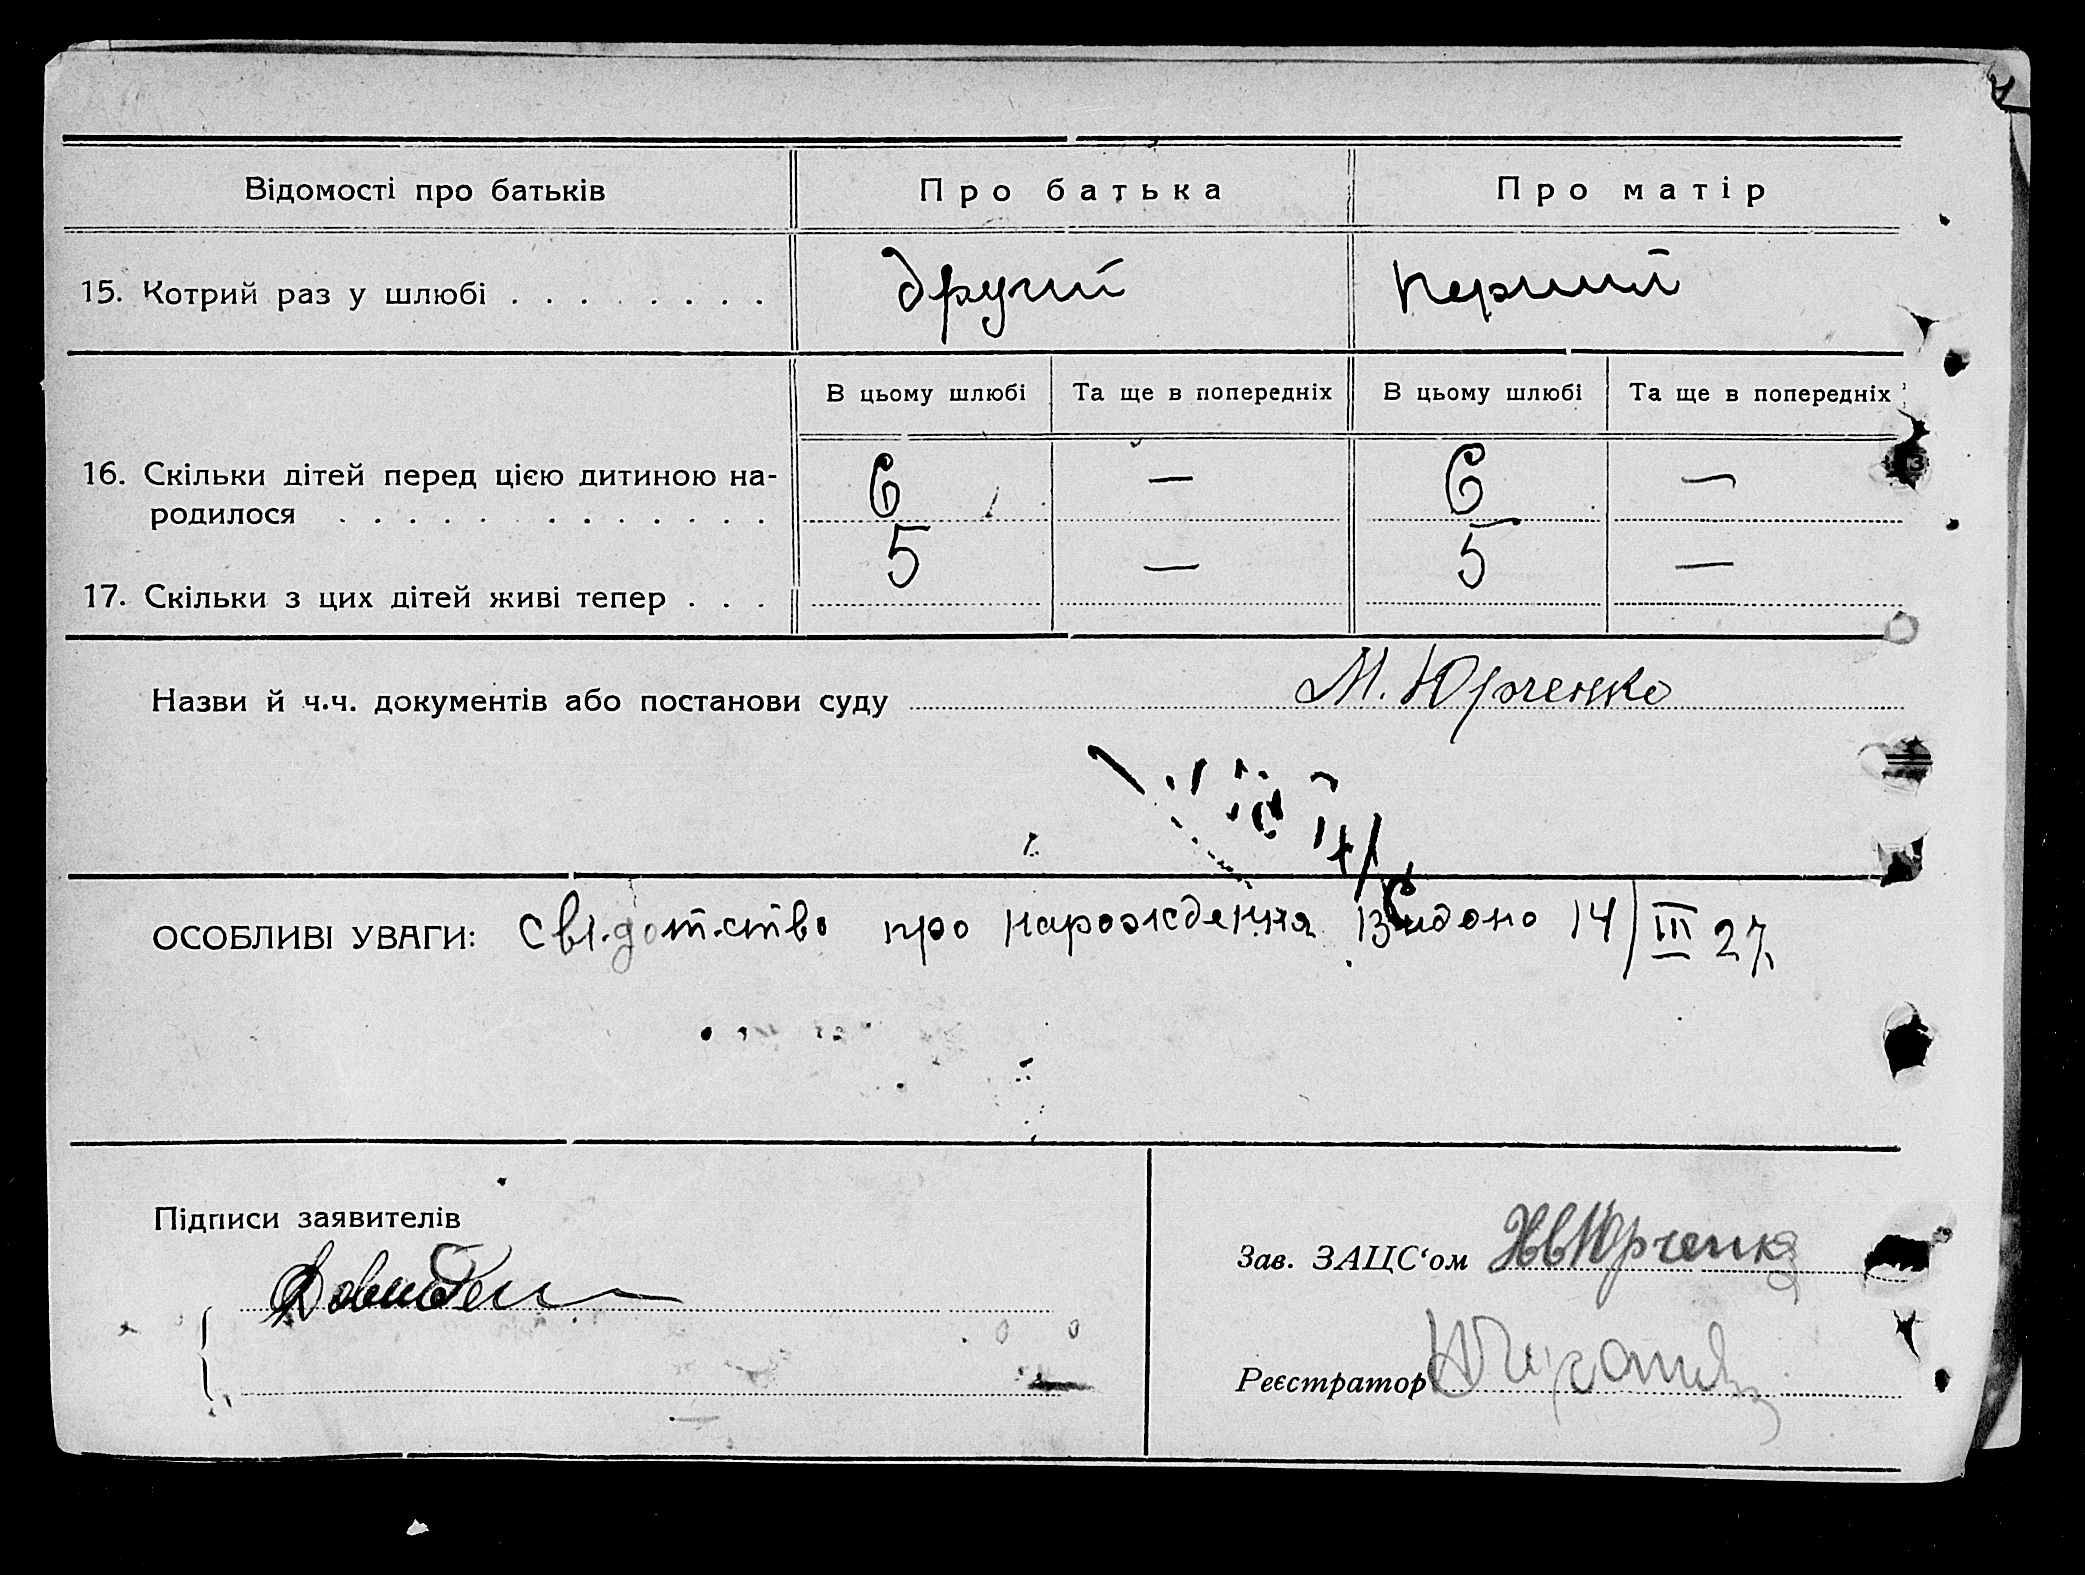 Відомості про батьків Про батька Про матір
15. Котрий раз у шлюбі . . . . . . . . другий перший
В цьому шлюбі Та ще в попередніх В цьому шлюбі Та ще в попередніх
16. Скільки дітей перед цією дитиною на- 6 — 6 —
родилося . . . . . . . . . . . . .
17. Скільки з цих дітей живі тепер . . . 5 — 5 —
Назви й ч.ч. документів або постанови суду М. Юрченко
ОСОБЛИВІ УВАГИ: свідотство про нарождення видано 14/III 27.
Підписи заявителів
Зав. ЗАЦС‘ом Юрченко
Реєстратор